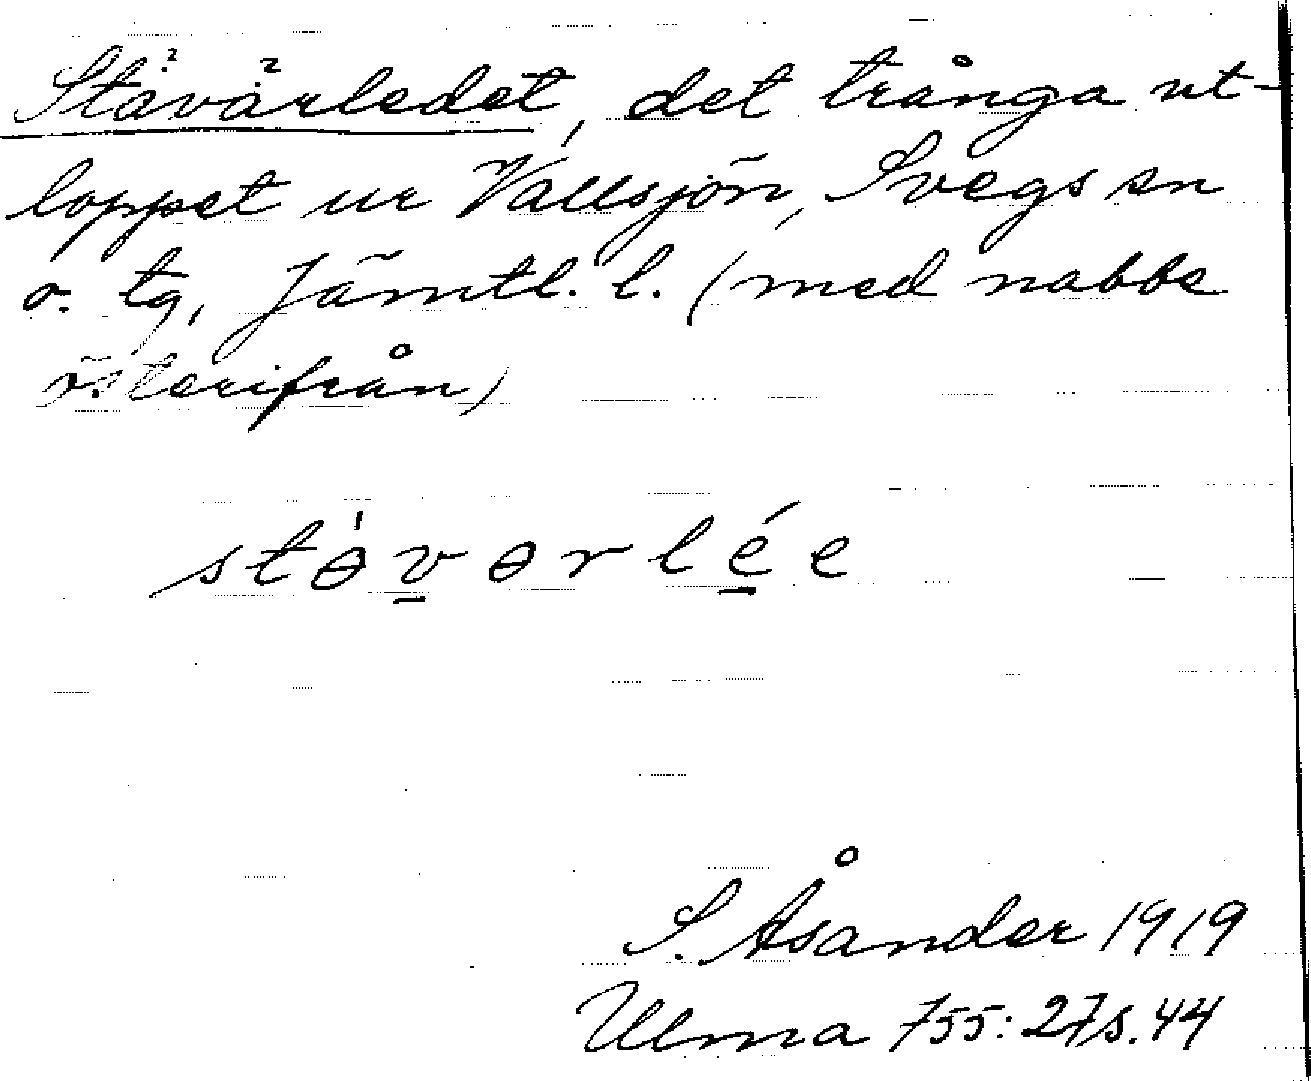 Stå̈vå̈rledet, det trånga ut-
loppet ur Vallsjön, Svegs sn
o. tg, Jämtl. l. (med nabbe
österifrån)
stɵ́v̲ɵrlé̲e
S. Åsander 1919
Ulma 755:27 s. 44